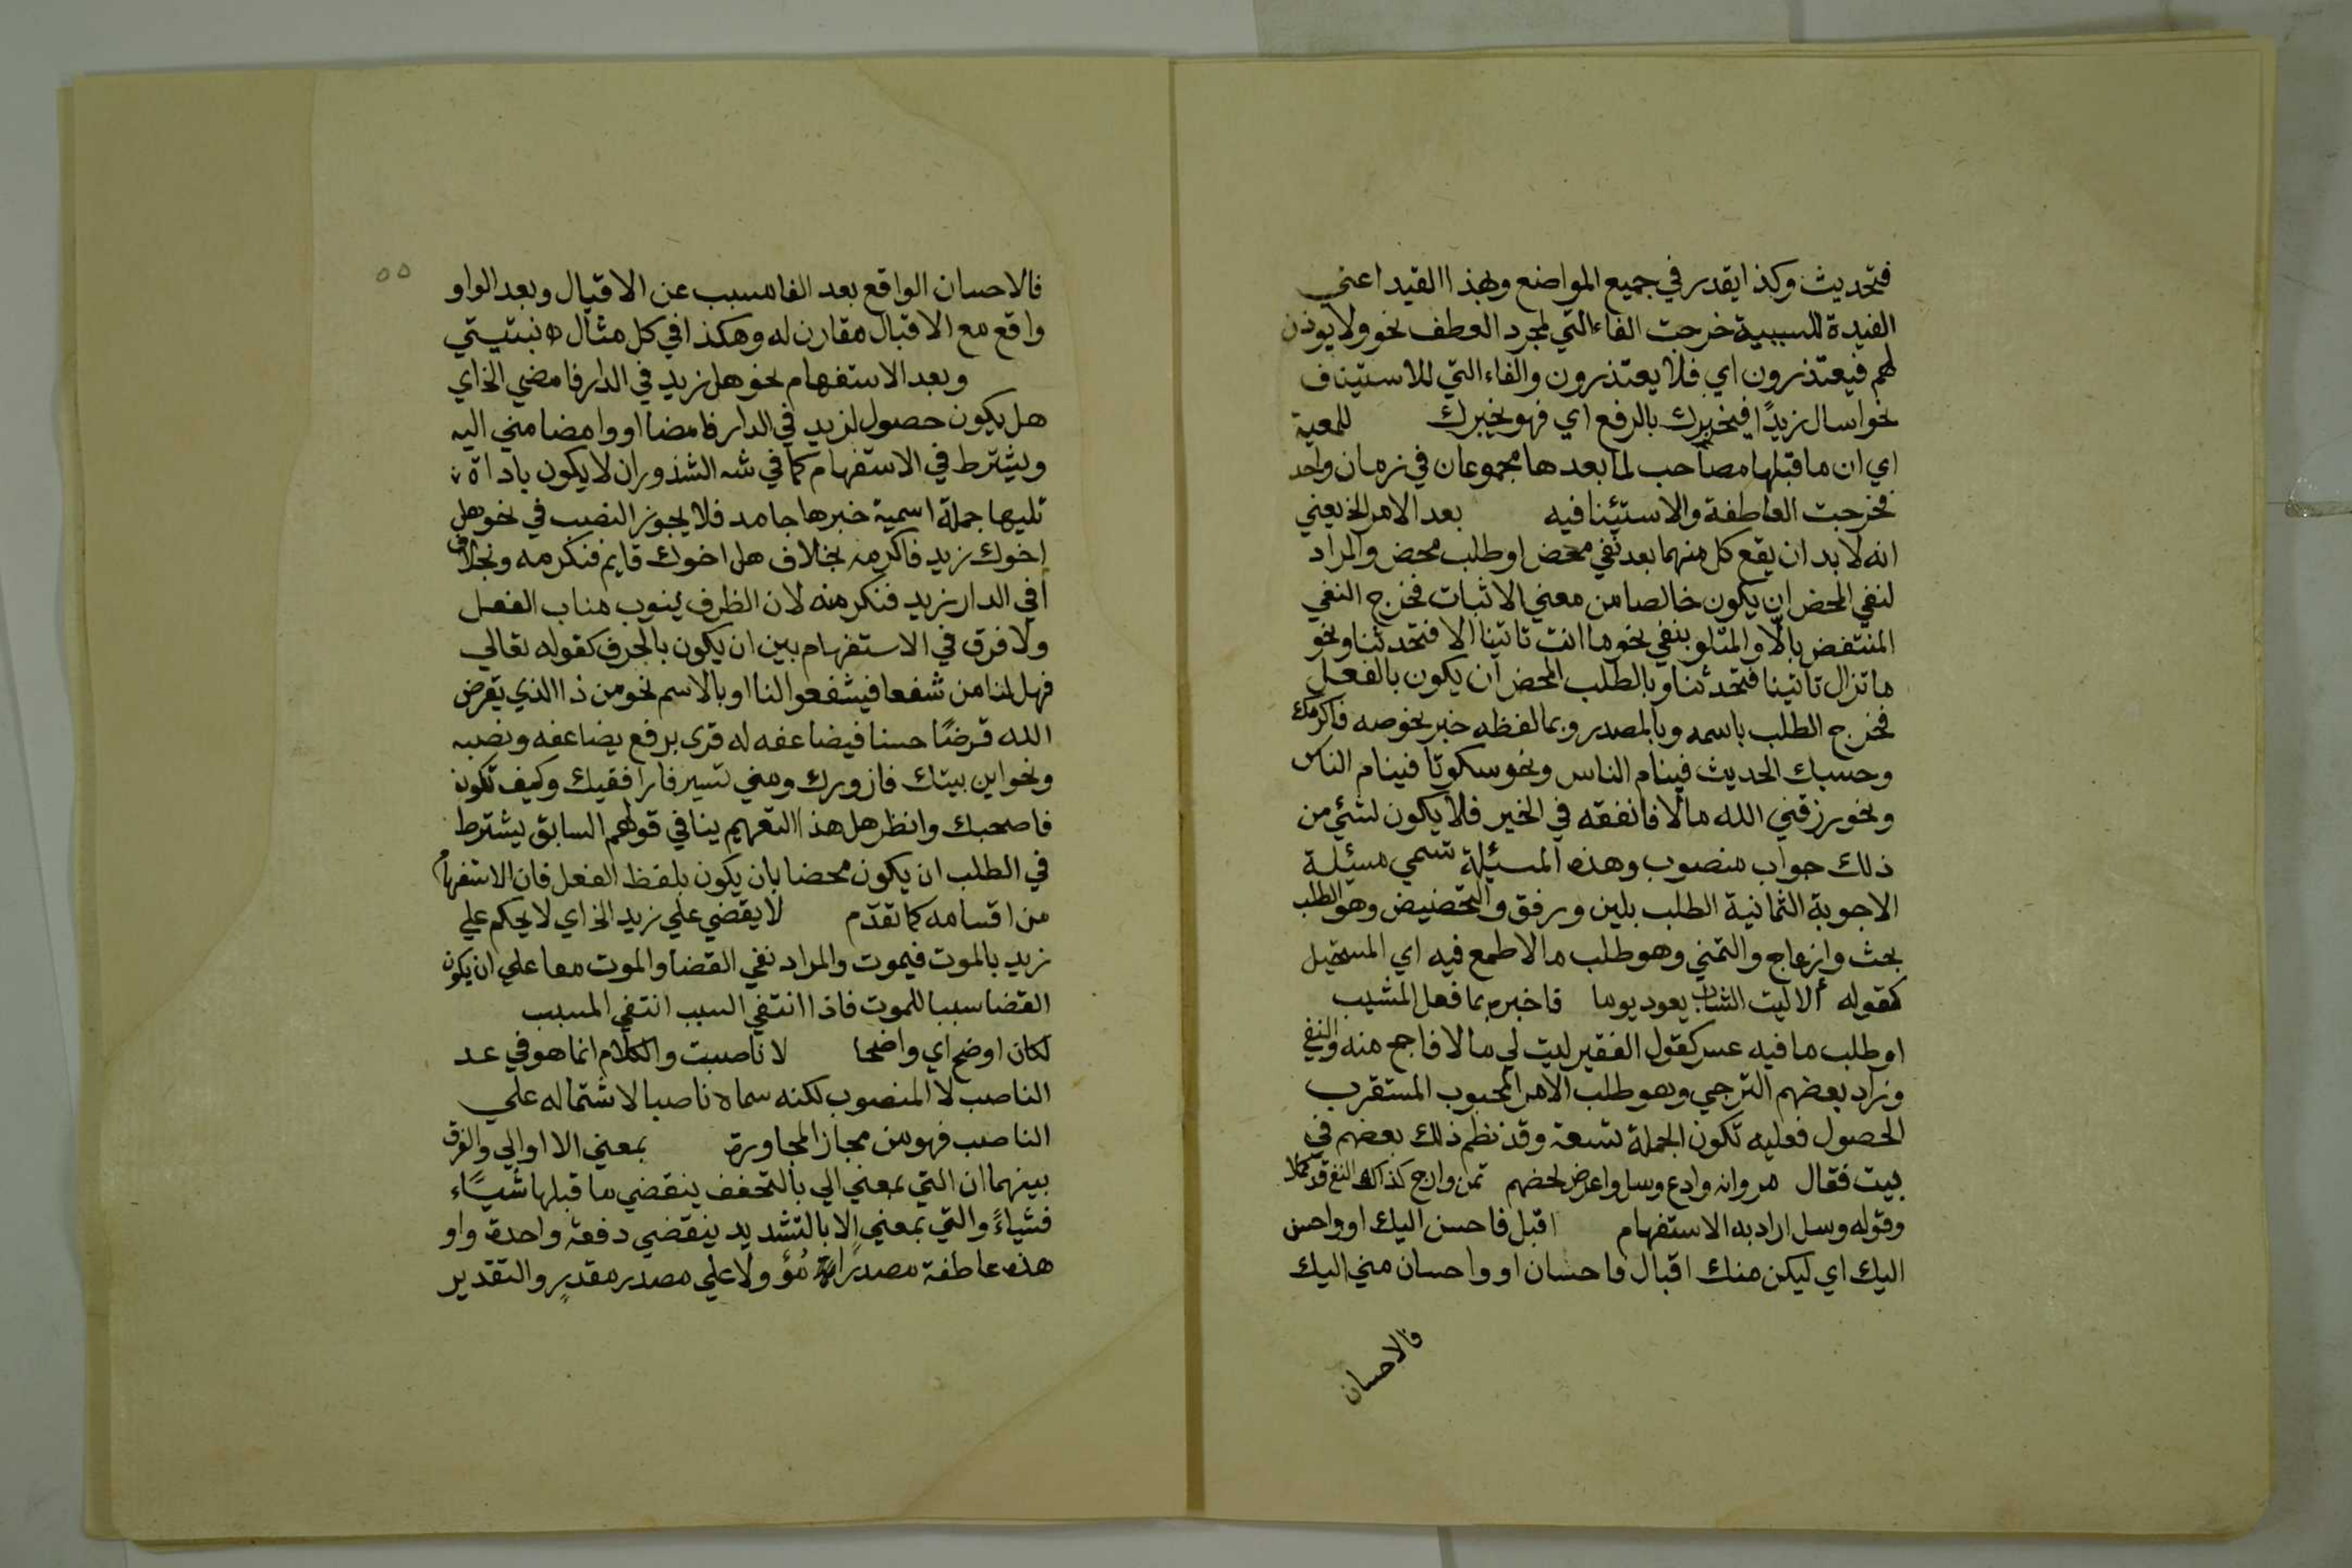 فتحديث وكذا يقدر في جميع المواضع وبهذا القيد اعني
المفيدة للسببية خرجت الفاء التي لمجرد العطف نحو ولا يوذن
لهم فيعتذرون اي فلا يعتذرون والفاء التي للاستيناف
نحو اسال زيدًا فيخبرك بالرفع اي فهو يخبرك للمعية
اي ان ما قبلها مصاحب لما بعدها مجموعان في زمان واحد
فخرجت العاطفة والاستئنافيه بعد الامر الخ يعني
انه لا بد ان يقع كل منهما بعد نفي محض او طلب محض والمراد
لنفي المحض ان يكون خالصا من معني الاثبات فخرج النفي
المنتقض بالا والمتلو بنفي نحو ما انت تاتينا الا فتحدثنا ونحو
ما تزال تاتينا فتحدثنا وبالطلب المحض ان يكون بالفعل
فخرج الطلب باسمه وبالمصدر وبما لفظه خبر نحو صه فاكرمك
وحسبك الحديث فينام الناس ونحو سكوتا فينام الناس
ونحو رزقني الله مالا فانفقه في الخير فلا يكون لشئ من
ذلك جواب منصوب وهذه المسيلة تسمي مسيئلة
الاجوبة الثمانية الطلب بلين ورفق والتحضيض وهو الطلب
بحث وازعاج والتمني وهو طلب ما لا طمع فيه اي المستحيل
كقوله ألا ليت الشباب يعود يوما فاخبره بما فعل المشيب
او طلب ما فيه عسر كقول الفقير ليت لي مالا فاحج منه والنفي
وزاد بعضهم الترجي وهو طلب الامر المحبوب المستقرب
الحصول فعليه تكون الجملة تسعة وقد نظم ذلك بعضهم في
بيت فقال مر وانه وادع وسل واعرض لحضهم تمن وارج كذاك النفي قد كملا
وقوله وسل اراد به الاستفهام اقبل فاحسن اليك او واحسن
اليك اي ليكن منك اقبال فاحسان او واحسان مني اليك
فالاحسان
٥٥
فالاحسان الواقع بعد الفا مسبب عن الاقبال وبعد الواو
واقع مع الاقبال مقارن له وهكذا في كل مثال
وبعد الاستفهام نحو هل زيد في الدار فامضي الخ اي
هل يكون حصول لزيد في الدار فامضا او وامضا مني اليه
ويشترط في الاستفهام كما في شه الشذور ان لا يكون باداة
تليها جملة اسمية خبرها جامد فلا يجوز النصب في نحو هل
اخوك زيد فاكرمه بخلاف هل اخوك قايم فنكرمه وبخلاف
أفي الدار زيد فنكرمنه لان الظرف ينوب مناب الفعل
ولا فرق في الاستفهام بين ان يكون بالحرف كقوله تعالي
فهل لنا من شفعا فيشفعوا لنا او بالاسم نحو من ذا الذي يقرض
الله قرضًا حسنا فيضاعفه له قري برفع يضاعفه ونصبه
ونحو اين بيتك فازورك ومني تسير فارافقيك وكيف تكون
فاصحبك وانظر هل هذا التعميم ينافي قولهم السابق يشترط
في الطلب ان يكون محضا بان يكون بلفظ الفعل فان الاستفهام
من اقسامه كما تقدّم لا يقضي علي زيد الخ اي لا يحكم علي
زيد بالموت فيموت والمراد نفي القضا والموت معا علي ان يكون
القضا سببا للموت فاذا انتفي السبب انتفي المسبب
لكان اوضح اي واضحا لا ناصبت والكلام انما هو في عد
الناصب لا المنصوب لكنه سماه ناصبا لاشتماله علي
الناصب فهو من مجاز المجاورة بمعني الا او الي والفرق
بينهما ان التي بمعني الي بالتخفف ينقضي ما قبلها شيًاء
فشياءً والتي بمعني الا بالتشديد ينقضي دفعة واحدة واو
هذه عاطفة مصدرًا مُؤَولا علي مصدر مقدرٍ والتقدير